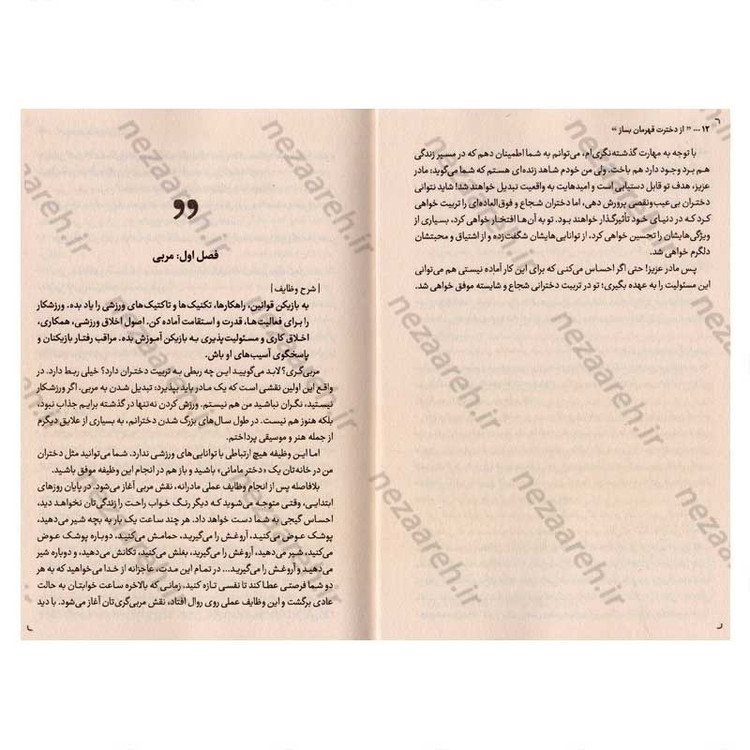 ۱۲ ... « از دخترت قهرمان بساز »
با توجه به مهارت گذشته‌نگری‌ام، می‌توانم به شما اطمینان دهم که در مسیر زندگی
هم برد وجود دارد هم باخت. ولی من خودم شاهد زنده‌ای هستم که شما می‌گوید: مادر
عزیز، هدف تو قابل دستیابی است و امیدهایت به واقعیت تبدیل خواهند شد! شاید نتوانی
دختران بی‌عیب‌ونقصی پرورش دهی، اما دختران شجاع و فوق‌العاده‌ای را تربیت خواهی
کرد که در دنیای خود تأثیرگذار خواهند بود. تو به آن‌ها افتخار خواهی کرد، بسیاری از
ویژگی‌هایشان را تحسین خواهی کرد، از توانایی‌هایشان شگفت‌زده و از اشتیاق و محبتشان
دلگرم خواهی شد.
پس مادر عزیز! حتی اگر احساس می‌کنی که برای این کار آماده نیستی هم می‌توانی
این مسئولیت را به عهده بگیری؛ تو در تربیت دخترانی شجاع و شایسته موفق خواهی شد.
فصل اول: مربی
| شرح وظایف |
به بازیکن قوانین، راهکارها، تکنیک‌ها و تاکتیک‌های ورزشی را یاد بده. ورزشکار
را برای فعالیت‌ها، قدرت و استقامت آماده کن. اصول اخلاق ورزشی، همکاری،
اخلاق کاری و مسئولیت‌پذیری به بازیکن آموزش بده. مراقب رفتار بازیکنان و
پاسخگوی آسیب‌های او باش.
مربی‌گری؟ لابد می‌گویید این چه ربطی به تربیت دختران دارد؟ خیلی ربط دارد. در
واقع این اولین نقشی است که یک مادر باید بپذیرد: تبدیل شدن به مربی. اگر ورزشکار
نیستید، نگران نباشید من هم نیستم. ورزش کردن نه‌تنها در گذشته برایم جذاب نبود،
بلکه هنوز هم نیست. در طول سال‌های بزرگ شدن دخترانم، به بسیاری از علایق دیگرم
از جمله هنر و موسیقی پرداختم.
اما این وظیفه هیچ ارتباطی با توانایی‌های ورزشی ندارد. شما می‌توانید مثل دختران
من در خانه‌تان یک «دختر مامانی» باشید و باز هم در انجام این وظیفه موفق باشید.
بلافاصله پس از انجام وظایف عملی مادرانه، نقش مربی آغاز می‌شود. در پایان روزهای
ابتدایی، وقتی متوجه می‌شوید که دیگر رنگ خواب راحت را زندگی‌تان نخواهد دید،
احساس گیجی به شما دست خواهد داد. هر چند ساعت یک بار به بچه شیر می‌دهید،
پوشک عوض می‌کنید، آروغش را می‌گیرید، حمامش می‌کنید، دوباره پوشک عوض
می‌کنید، شیر می‌دهید، آروغش را می‌گیرید، بغلش می‌کنید، تکانش می‌دهید، و دوباره شیر
می‌دهید و آروغش را می‌گیرید... در تمام این مدت، عاجزانه از خدا می‌خواهید که به هر
دو شما فرصتی عطا کند تا نفسی تازه کنید. زمانی که بالاخره ساعت خوابتان به حالت
عادی برگشت و این وظایف عملی روی روال افتاد، نقش مربی‌گری‌تان آغاز می‌شود. با دید
nezaareh.ir